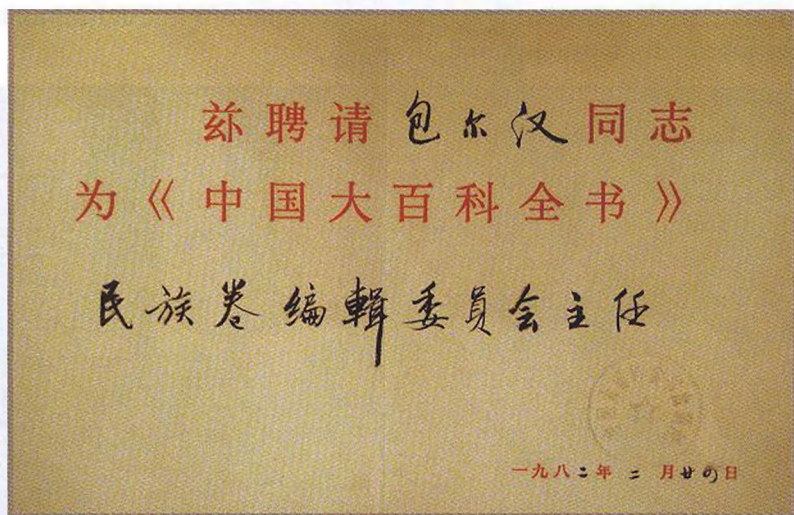 兹聘请包尔汉同志
为《中国大百科全书》
民族卷编輯委员会主任
一九八二年二月廿四日